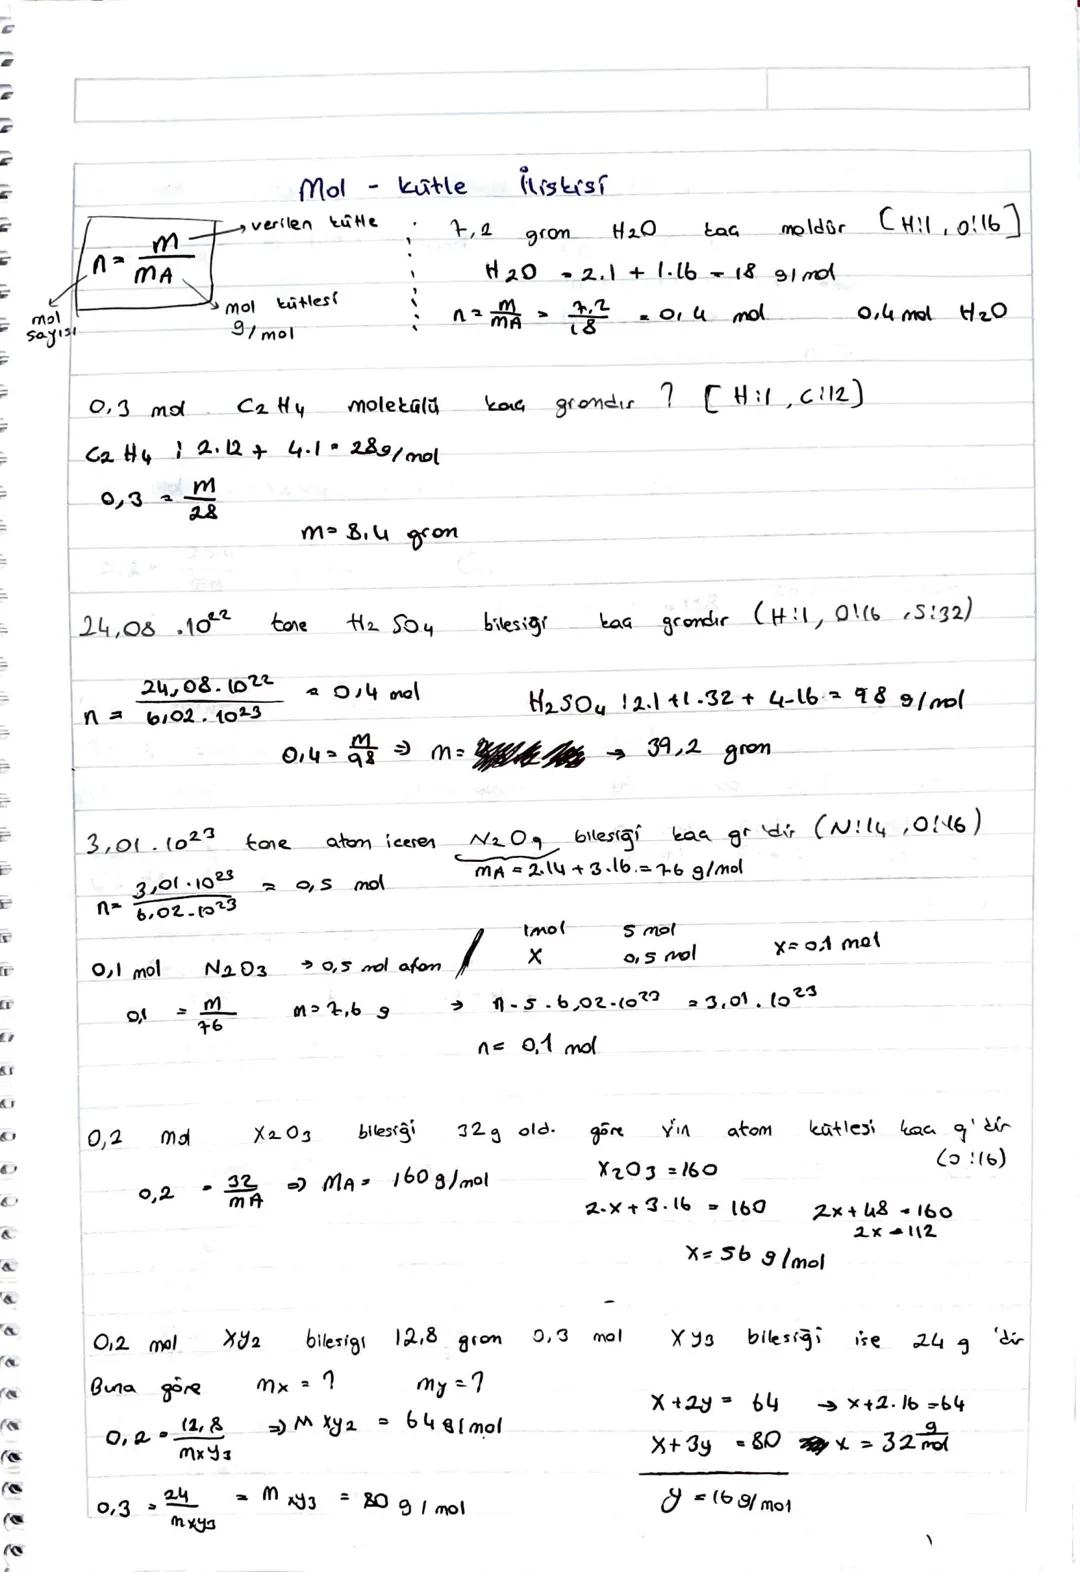 Mol - kütle İlişkisi
n = m / MA
verilen kütle
mol kütlesi
g/mol
mol
sayısı
7,2 gram H2O kaç moldür [H:1, O:16]
H2O = 2.1 + 1.16 = 18 g/mol
n = m/MA = 7,2/18 = 0,4 mol 0,4 mol H2O
0,3 mol C2H4 molekülü kaç gramdır ? [H:1, C:12]
C2H4 : 2.12 + 4.1 = 28g/mol
0,3 = m/28
m = 8,4 gram
24,08 .10²² tane H2SO4 bileşiği kaç gramdır (H:1, O:16, S:32)
n = 24,08.10²² / 6,02.10²³ = 0,4 mol H2SO4 : 2.1 + 1.32 + 4.16 = 98 g/mol
0,4 = m/98 ⇒ m = → 39,2 gram
3,01.10²³ tane atom içeren N2O3 bileşiği kaç gr'dir (N:14, O:16)
MA = 2.14 + 3.16 = 76 g/mol
n = 3,01.10²³ / 6,02.10²³ = 0,5 mol
1mol 5 mol
0,1 mol N2O3 → 0,5 mol atom / X 0,5 mol X = 0,1 mol
0,1 = m/76 m = 7,6 g → n.5.6,02.10²³ = 3,01.10²³
n = 0,1 mol
0,2 mol X2O3 bileşiği 32g old. göre X'in atom kütlesi kaç g'dir
(O:16)
0,2 = 32/MA ⇒ MA = 160 g/mol X2O3 = 160
2.X + 3.16 = 160 2x + 48 = 160
2x = 112
X = 56 g/mol
0,2 mol XY2 bileşiği 12,8 gram 0,3 mol XY3 bileşiği ise 24 g 'dir
Buna göre mx = ? my = ?
0,2 = 12,8/mxy3 ⇒ M xy2 = 64 g/mol
0,3 = 24/mxy3 = m xy3 = 80 g/mol
X + 2y = 64 → x + 2.16 = 64
X + 3y = 80 x = 32 g/mol
y = 16 g/mol